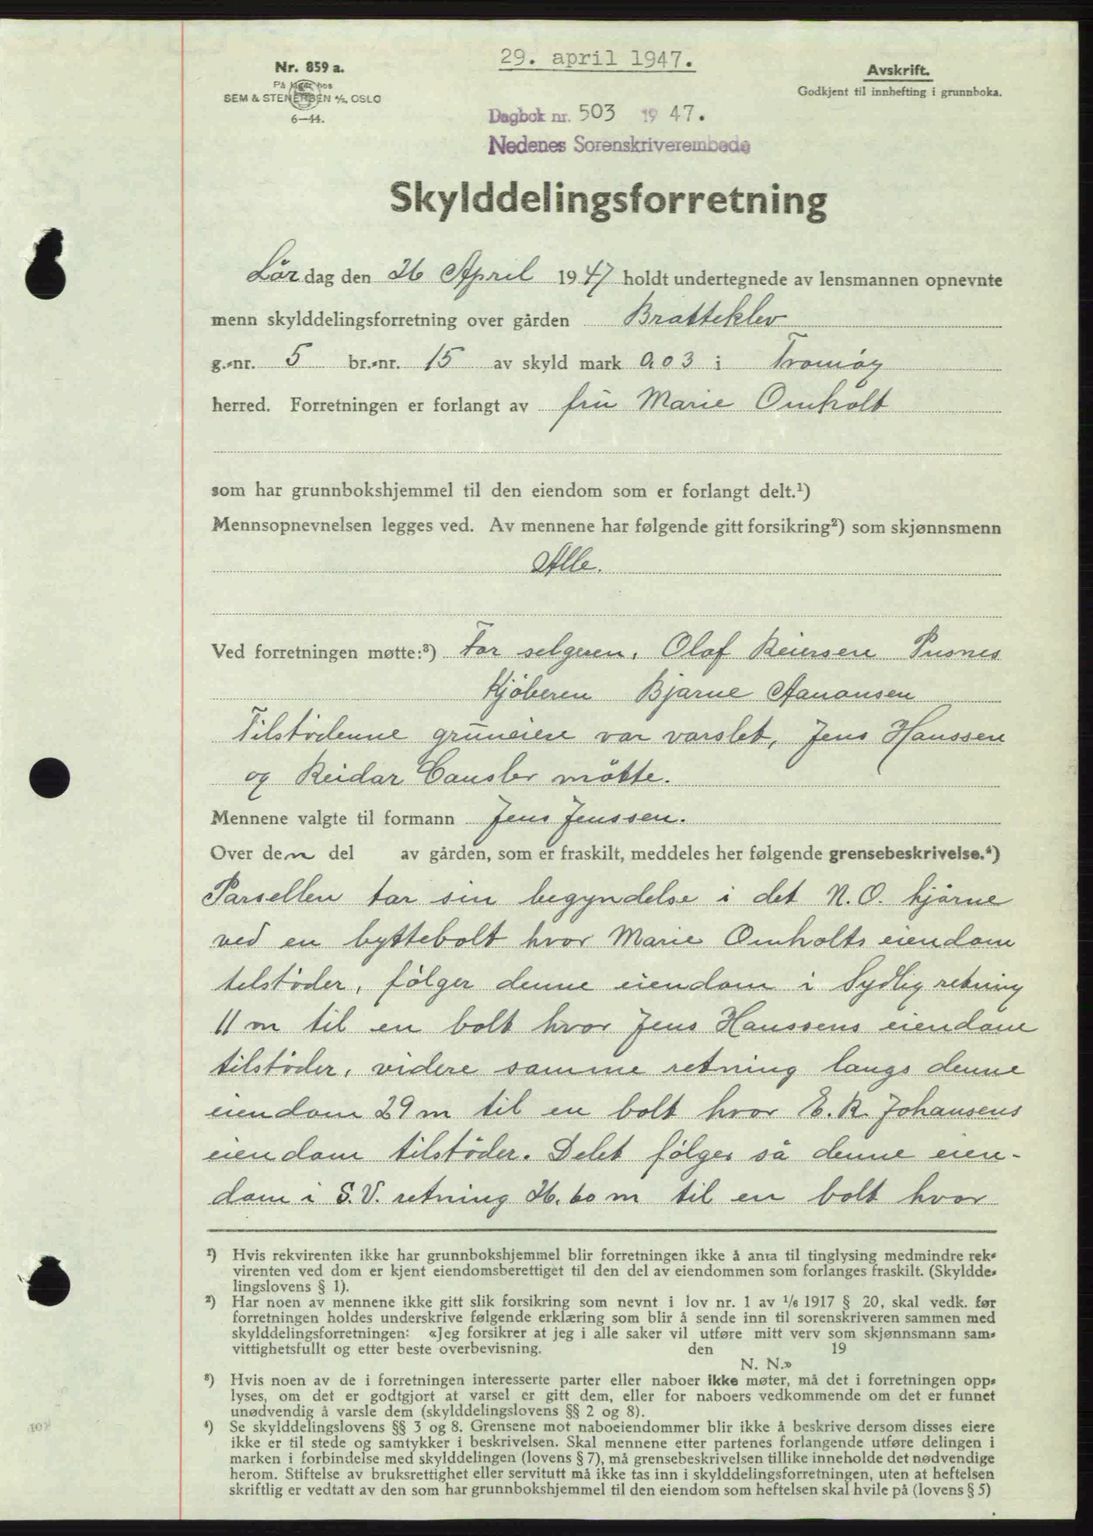 29. april 1947.
Nr. 859 a.
På lager hos
SEM & STENERSEN A/S, OSLO
6—44.
Avskrift.
Godkjent til innhefting i grunnboka.
Dagbok nr. 503 1947.
Nedenes Sorenskriverembede
Skylddelingsforretning
Lördag den 26 April 1947 holdt undertegnede av lensmannen opnevnte
menn skylddelingsforretning over gården Bratteklev
g.-nr. 5 br.-nr. 15 av skyld mark 0,03 i Tromöy
herred. Forretningen er forlangt av fru Marie Omholt
som har grunnbokshjemmel til den eiendom som er forlangt delt.¹)
Mennsopnevnelsen legges ved. Av mennene har følgende gitt forsikring²) som skjønnsmenn
Alle.
Ved forretningen møtte:³) For selgeren, Olaf Reiersen Pusnes
Kjöberen Bjarne Aanonsen
Tilstödenne gruneiere var varslet, Jens Hanssen
og Reidar mötte.
Mennene valgte til formann Jens Jenssen.
Over den del av gården, som er fraskilt, meddeles her følgende grensebeskrivelse.⁴)
Parsellen tar sin begyndelse i det N.O. hjörne
ved en byttebolt hvor Marie Omholts eiendom
tilstöder, fölger denne eiendom i Sydlig retning
11 m til en bolt hvor Jens Hanssens eiendom
tilstöder, videre samme retning langs denne
eiendom 29 m til en bolt hvor E. R. Johansens
eiendom tilstöder. Delet fölger så denne eien-
dom i S.V. retning 26,60 m til en bolt hvor
¹) Hvis rekvirenten ikke har grunnbokshjemmel blir forretningen ikke å anta til tinglysing medmindre rek-
virenten ved dom er kjent eiendomsberettiget til den del av eiendommen som forlanges fraskilt. (Skyldde-
lingslovens § 1).
²) Har noen av mennene ikke gitt slik forsikring som nevnt i lov nr. 1 av 1/6 1917 § 20, skal vedk. før
forretningen holdes underskrive følgende erklæring som blir å sende inn til sorenskriveren sammen med
skylddelingsforretningen: «Jeg forsikrer at jeg i alle saker vil utføre mitt verv som skjønnsmann sam-
vittighetsfullt og etter beste overbevisning. den 19
N. N.»
³) Hvis noen av de i forretningen interesserte parter eller naboer ikke møter, må det i forretningen opp-
lyses, om det er godtgjort at varsel er gitt dem, eller for naboers vedkommende om det er funnet
unødvendig å varsle dem (skylddelingslovens §§ 2 og 8).
⁴) Se skylddelingslovens §§ 3 og 8. Grensene mot naboeiendommer blir ikke å beskrive dersom disses eiere
ikke er til stede og samtykker i beskrivelsen. Skal mennene etter partenes forlangende utføre delingen i
marken i forbindelse med skylddelingen (lovens § 7), må grensebeskrivelsen tillike inneholde det nødvendige
herom. Stiftelse av bruksrettighet eller servitutt må ikke tas inn i skylddelingsforretningen, uten at heftelsen
skriftlig er vedtatt av den som har grunnbokshjemmel til den eiendom som heftelsen skal hvile på (lovens § 5)